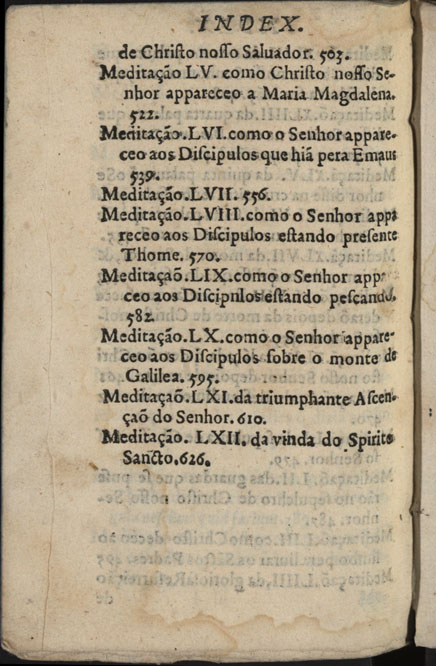 INDEX.
de Chriſto noſſo Saluador. 503.
Meditação LV. como Chriſto noſſo Se-
nhor appareceo a Maria Magdalena.
522.
Meditação.LVI.como o Senhor appare-
ceo aos Diſcipulos que hiã pera Emaus
539.
Meditação.LVII. 556.
Meditação.LVIII.como o Senhor appa
receo aos Diſcipulos eſtando preſente
Thome. 570.
Meditaçaõ.LIX.como o Senhor appa
ceo aos Diſcipnlos eſtando peſcando.
582.
Meditação.LX.como o Senhor appare-
ceo aos Diſcipulos ſobre o monte de
Galilea. 595.
Meditaçaõ.LXI.da triumphante Aſcen-
çaõ do Senhor. 610.
Meditação. LXII. da vinda do Spirito
Sancto.626.